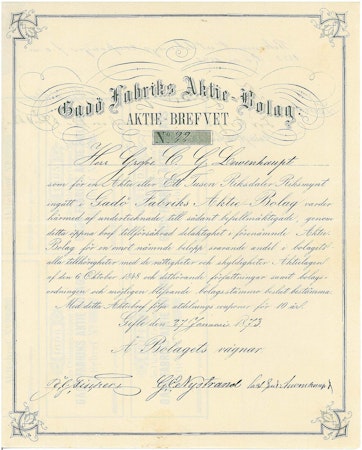 Gadö Fabriks Aktie-Bolag.
AKTIE-BREFVET
No 22
Herr Grefve C G Lewenhaupt
som för en Aktie eller Ett Tusen Riksdaler Riksmynt
ingått i Gadö Fabriks Aktie-Bolag varder
härmed af undertecknade, till sådant befullmäktigade, genom
detta öppna bref tillförsäkrad delaktighet i förenämnde Aktie-
Bolag för en emot nämnde belopp svarande andel i bolagets
alla tillhörigheter med de rättigheter och skyldigheter Aktielagen
af den 6 Oktober 1848 och dithörande författningar samt bolags-
ordningen och möjligen följande bolagsstämmo beslut bestämma.
Med detta Aktiebref följa utdelnings couponer för 10 år.
Gefle den 27 Januari 1873.
Å Bolagets vägnar
G. E. Nystrand